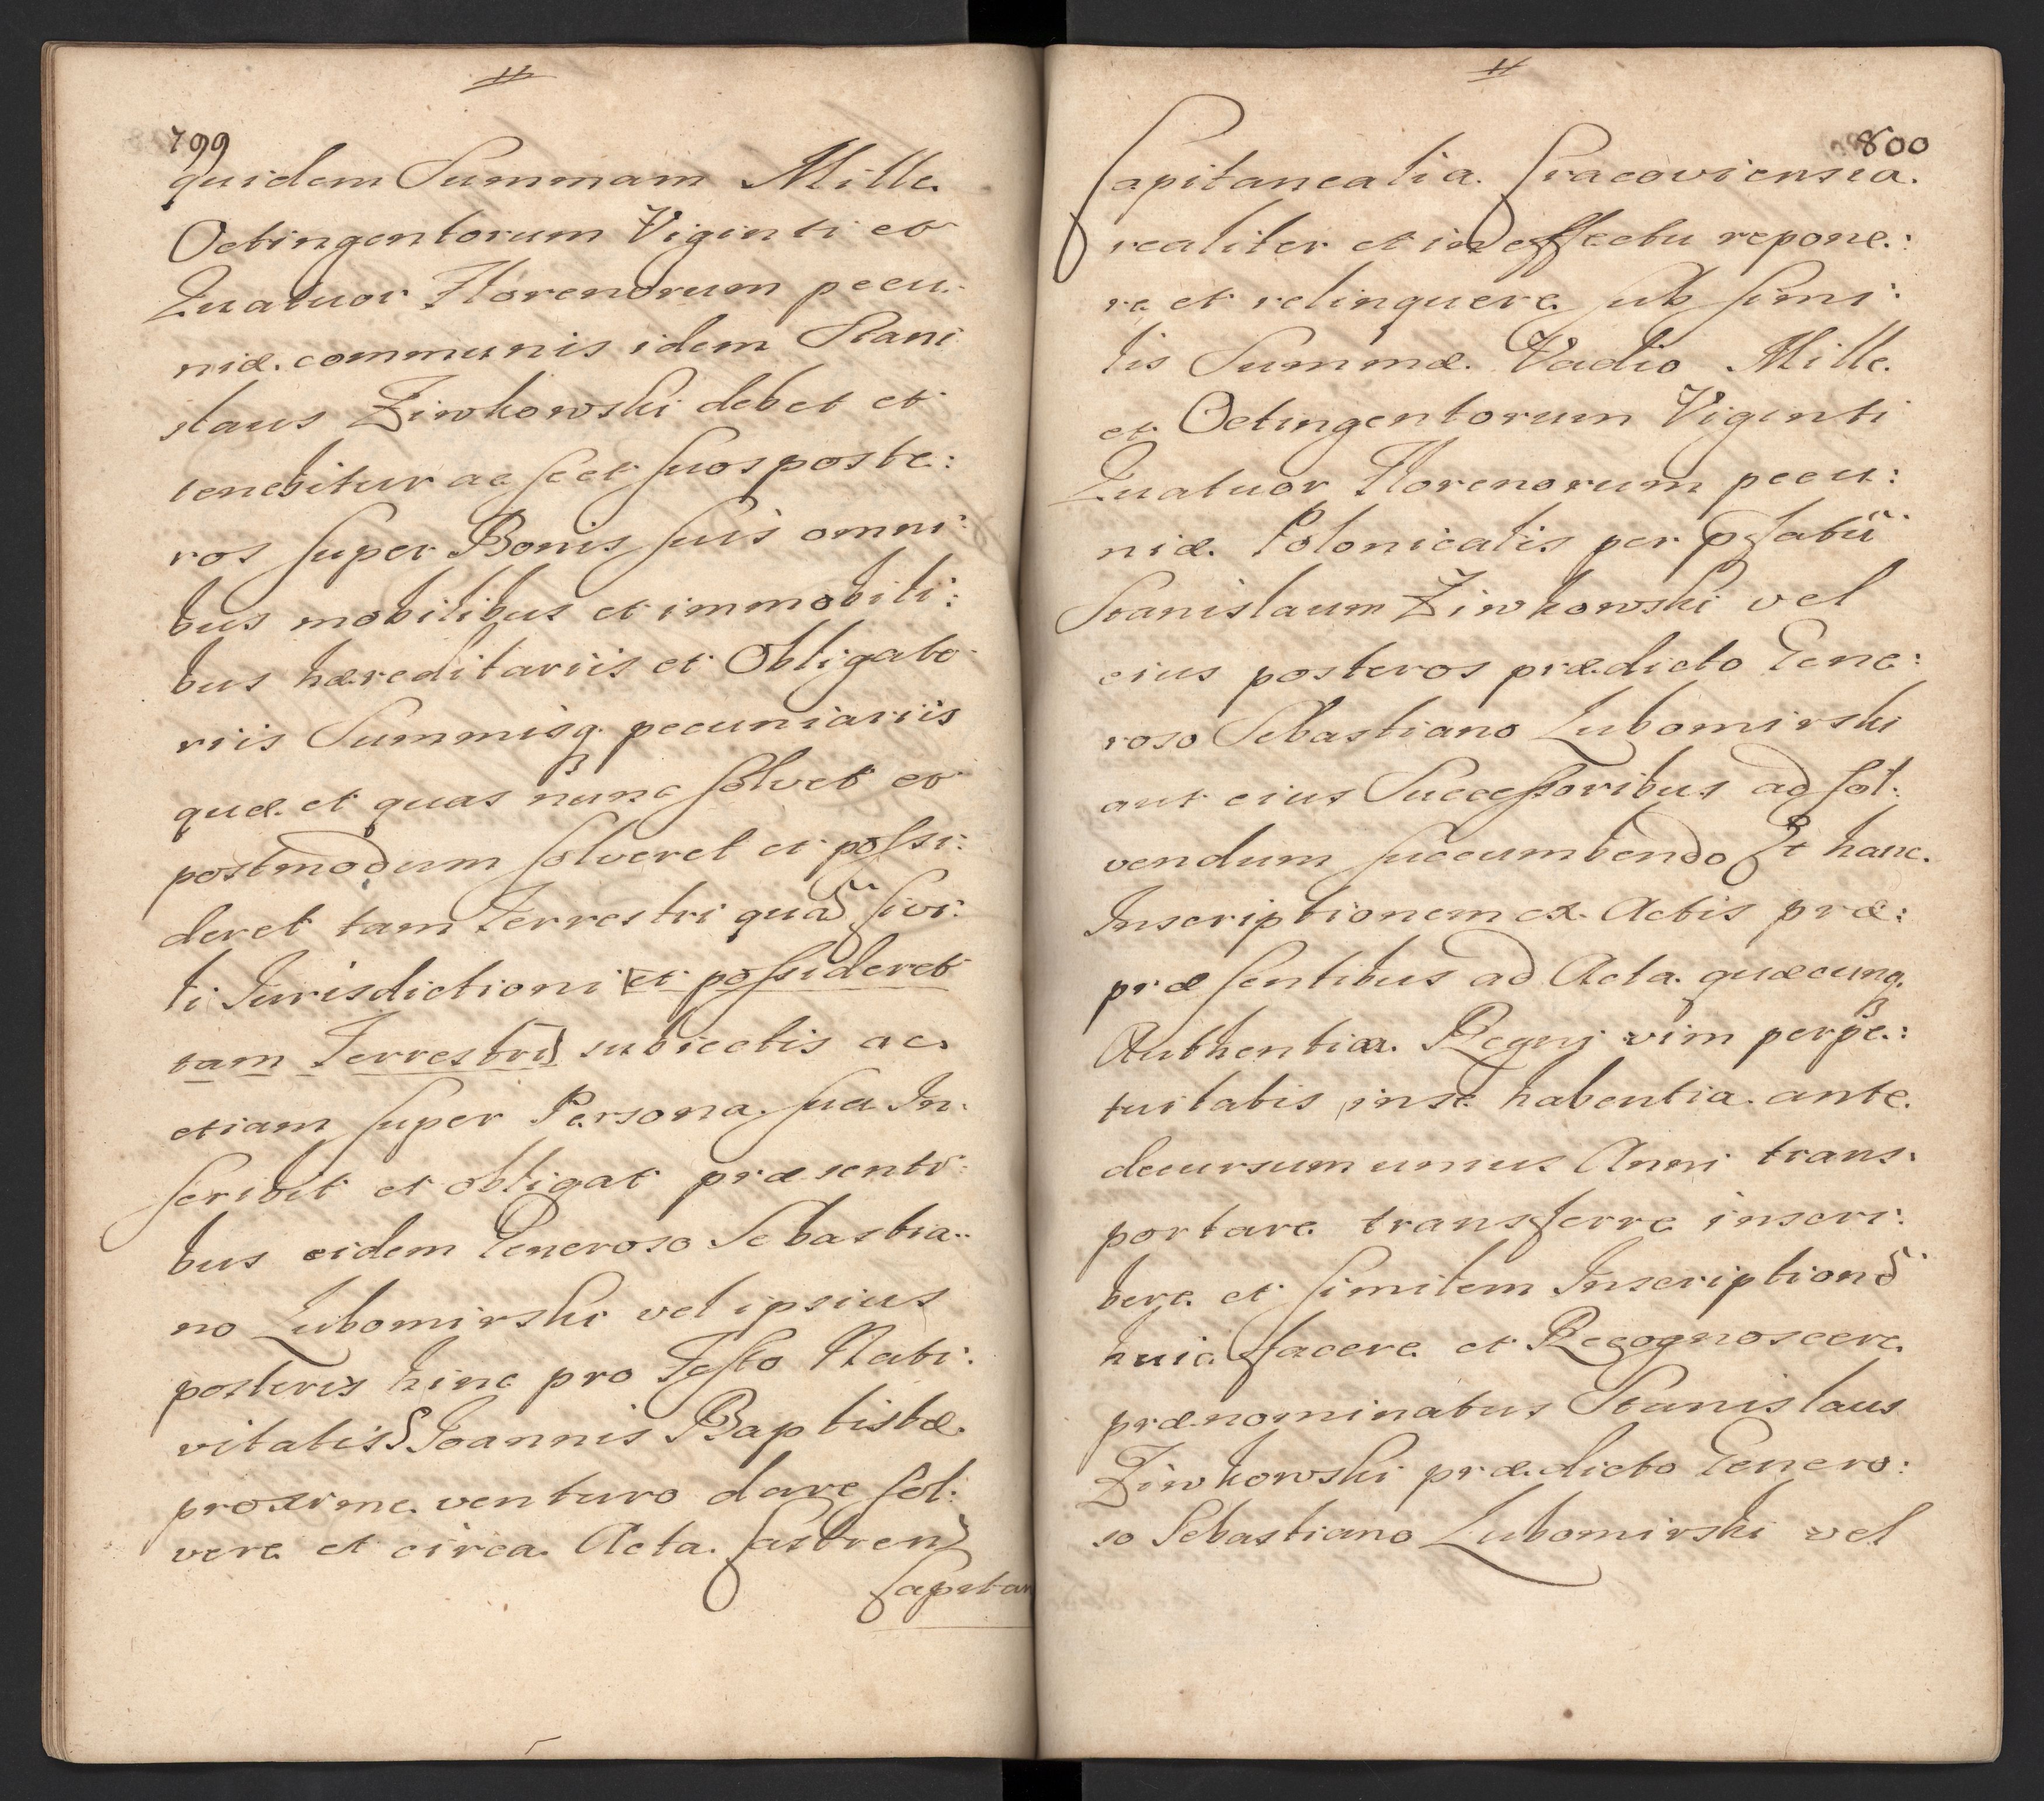 799
quidem Summam Mille
Octingentorum Viginti et
Quatuor Florenorum pecu:
niæ communis idem Stani
slaus Ziwkowski debet et
tenebitur ac se et suos poste:
ros super Bonis suis omni:
bus mobilibus et immobili:
bus hæreditariis et Obligato
riis Summisq. pecuniariis
quæ et quas nunc solvet et
postmodum solveret et possi:
deret tam Terrestri quā Civi:
li Iurisdictioni et possideret
tam Terrestri subiectis ac
etiam super Persona sua In:
scribit et obligat præsenti:
bus eidem Generoso Sebastia:
no Lubomirski vel ipsius
posteris hinc pro Festo Nati:
vitatis S Joannis Baptistæ
proxime venturo dare sol:
vere et circa Acta Castren
Capitan
800
Capitanealia Cracoviensia
realiter et in effectu repone:
re et relinquere sub simi:
lis Summæ Vadio Mille
et Octingentorum Viginti
Quatuor Florenorum pecu:
niæ Polonicalis per pfatū
Stanislaum Ziwkowski vel
eius posteros prædicto Gene:
roso Sebastiano Lubomirski
aut eius Successoribus ad sol:
vendum succumbendo Et hanc
Inscriptionem ex Actis præ:
præsentibus ad Acta quæcunq.
Authentica Regni vim perpe:
tuitatis in se habentia ante
decursum unius Anni trans:
portare transferre inscri:
bere et similem Inscriptionē
huic facere et Recognoscere
prænominatus Stanislaus
Ziwkowski prædicto Genero:
so Sebastiano Lubomirski vel